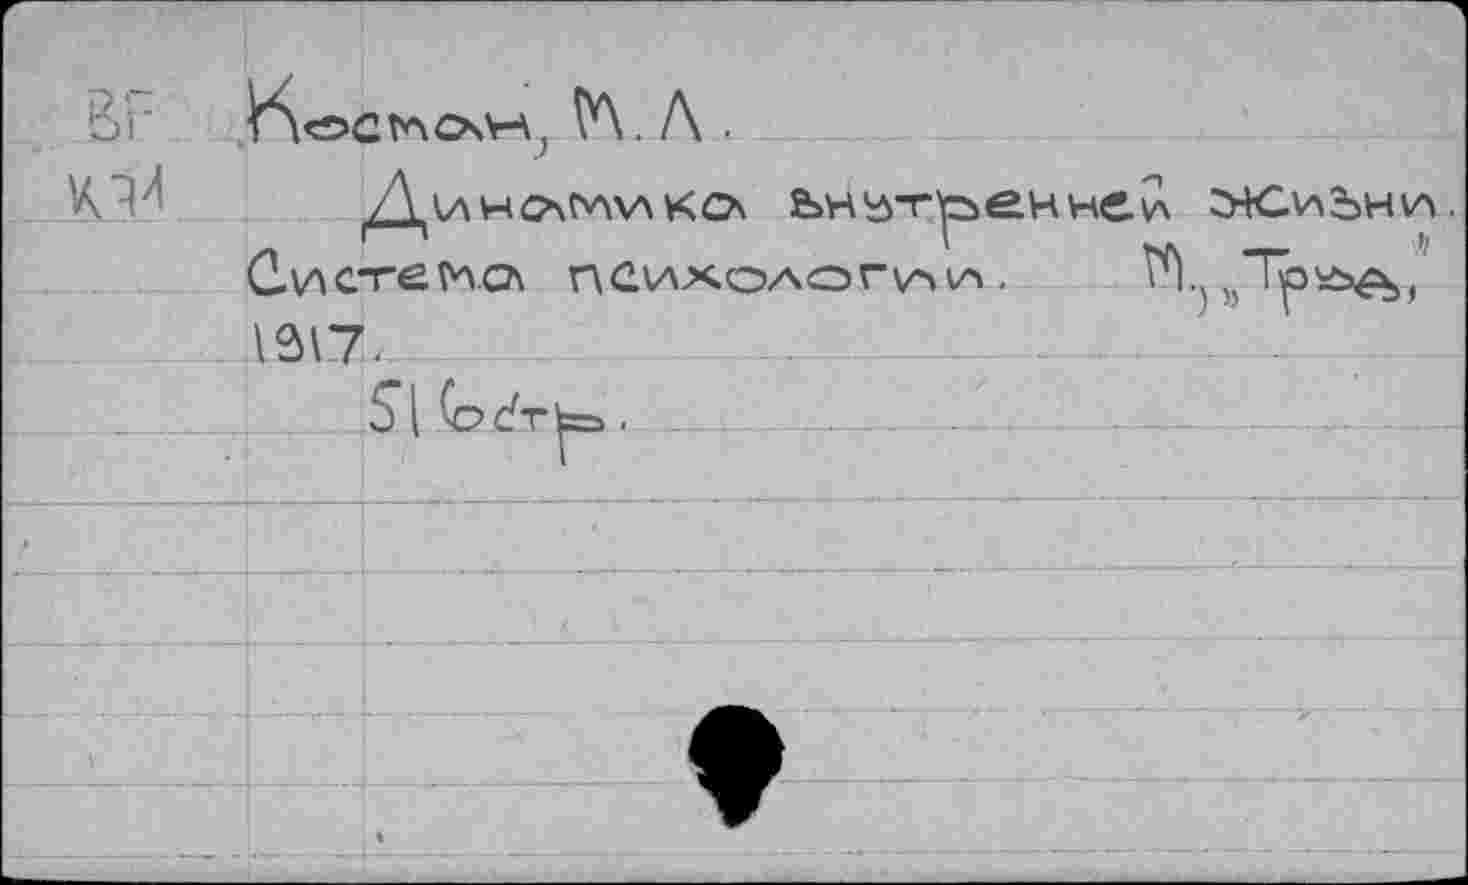 BF Косман, М. Л.
К74 Динамика внутренней жизни.
Система психологии. М., „Труд,"
1917.
51 стр.